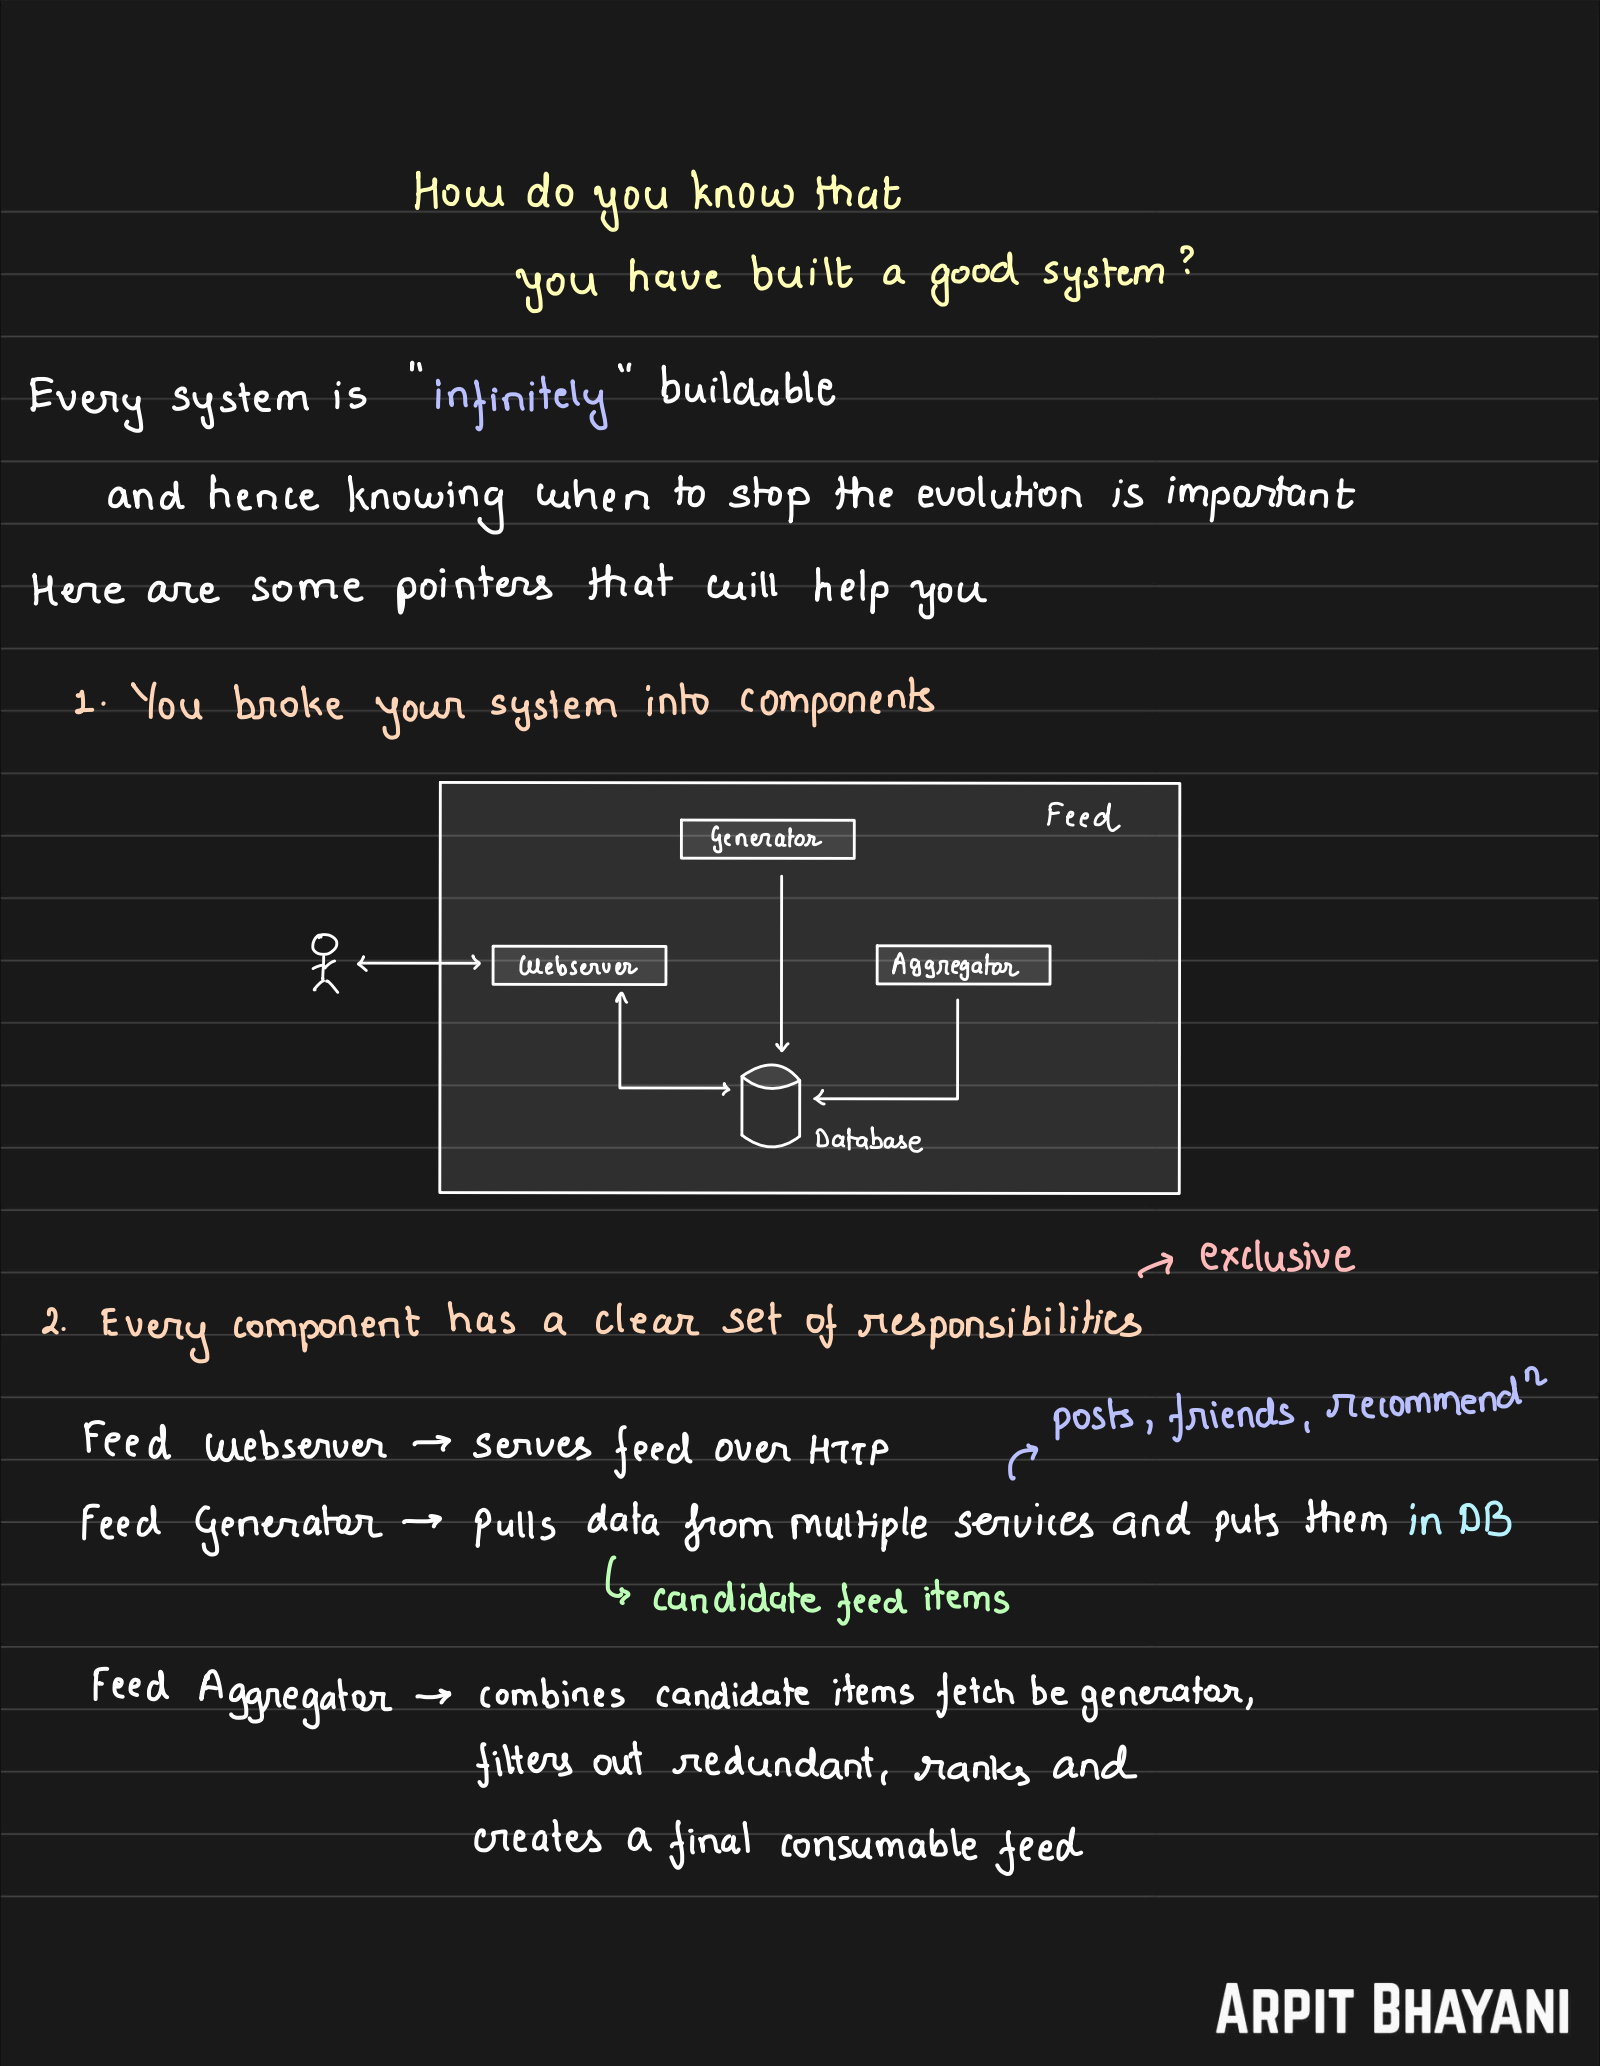 How do you know that
you have built a good system?
Every system is "infinitely" buildable
and hence knowing when to stop the evolution is important
Here are some pointers that will help you
1. You broke your system into components
Feed
Generator
Webserver
Aggregator
Database
exclusive
2. Every component has a clear set of responsibilities
posts, friends, recommendⁿ
Feed Webserver → serves feed over HTTP
Feed Generator → pulls data from multiple services and puts them in DB
candidate feed items
Feed Aggregator → combines candidate items fetch be generator,
filters out redundant, ranks and
creates a final consumable feed
ARPIT BHAYANI